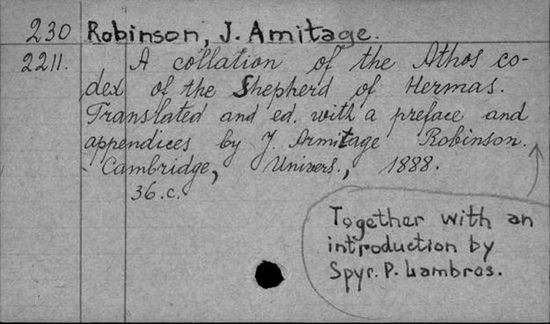 230 Robinson, J. Amitage.
2211. A collation of the Athos co-
dex of the Shepherd of Hermas.
Translated and ed. with a preface and
appendices by J. Armitage Robinson.
Cambridge, Univers., 1888.
36.c.
Together with an
introduction by
Spyr. P. Lambros.